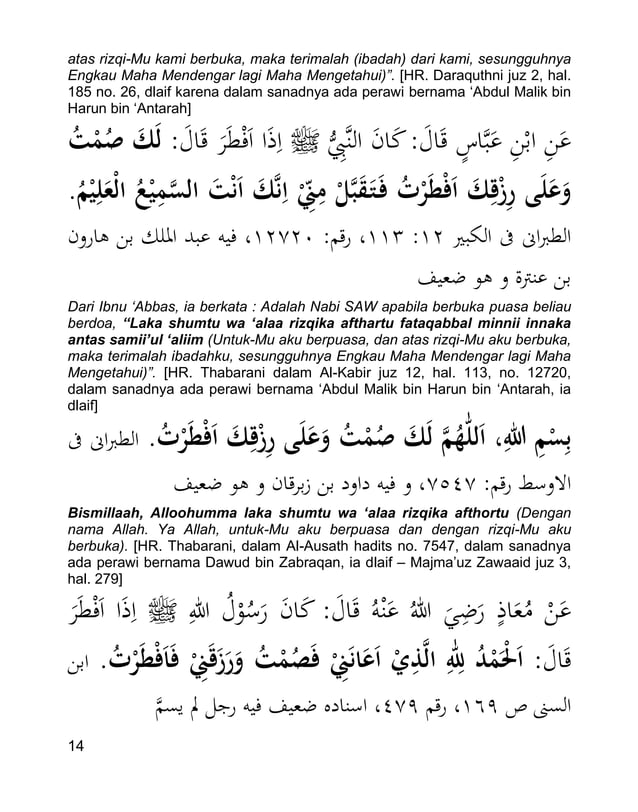 atas rizqi-Mu kami berbuka, maka terimalah (ibadah) dari kami, sesungguhnya
Engkau Maha Mendengar lagi Maha Mengetahui)”. [HR. Daraquthni juz 2, hal.
185 no. 26, dlaif karena dalam sanadnya ada perawi bernama ‘Abdul Malik bin
Harun bin ‘Antarah]
عَنِ ابْنِ عَبَّاسٍ قَالَ: كَانَ النَّبِيُّ ﷺ اِذَا اَفْطَرَ قَالَ: لَكَ صُمْتُ
وَعَلَى رِزْقِكَ اَفْطَرْتُ فَتَقَبَّلْ مِنِّيْ اِنَّكَ اَنْتَ السَّمِيْعُ الْعَلِيْمُ.
الطبرانى فى الكبير ١٢: ١١٣، رقم: ١٢٧٢٠، فيه عبد الملك بن هارون
بن عنترة و هو ضعيف
Dari Ibnu ‘Abbas, ia berkata : Adalah Nabi SAW apabila berbuka puasa beliau
berdoa, “Laka shumtu wa ‘alaa rizqika afthartu fataqabbal minnii innaka
antas samii’ul ‘aliim (Untuk-Mu aku berpuasa, dan atas rizqi-Mu aku berbuka,
maka terimalah ibadahku, sesungguhnya Engkau Maha Mendengar lagi Maha
Mengetahui)”. [HR. Thabarani dalam Al-Kabir juz 12, hal. 113, no. 12720,
dalam sanadnya ada perawi bernama ‘Abdul Malik bin Harun bin ‘Antarah, ia
dlaif]
بِسْمِ اللهِ، اَللّٰهُمَّ لَكَ صُمْتُ وَعَلَى رِزْقِكَ اَفْطَرْتُ. الطبرانى فى
الاوسط رقم: ٧٥٤٧، و فيه داود بن زبرقان و هو ضعيف
Bismillaah, Alloohumma laka shumtu wa ‘alaa rizqika afthortu (Dengan
nama Allah. Ya Allah, untuk-Mu aku berpuasa dan dengan rizqi-Mu aku
berbuka). [HR. Thabarani, dalam Al-Ausath hadits no. 7547, dalam sanadnya
ada perawi bernama Dawud bin Zabraqan, ia dlaif – Majma’uz Zawaaid juz 3,
hal. 279]
عَنْ مُعَاذٍ رَضِيَ اللهُ عَنْهُ قَالَ: كَانَ رَسُوْلُ اللهِ ﷺ اِذَا اَفْطَرَ
قَالَ: اَلْحَمْدُ لِلّٰهِ الَّذِيْ اَعَانَنِيْ فَصُمْتُ وَرَزَقَنِيْ فَاَفْطَرْتُ. ابن
السنى ص ١٦٩، رقم ٤٧٩، اسناده ضعيف فيه رجل لم يسمَّ
14